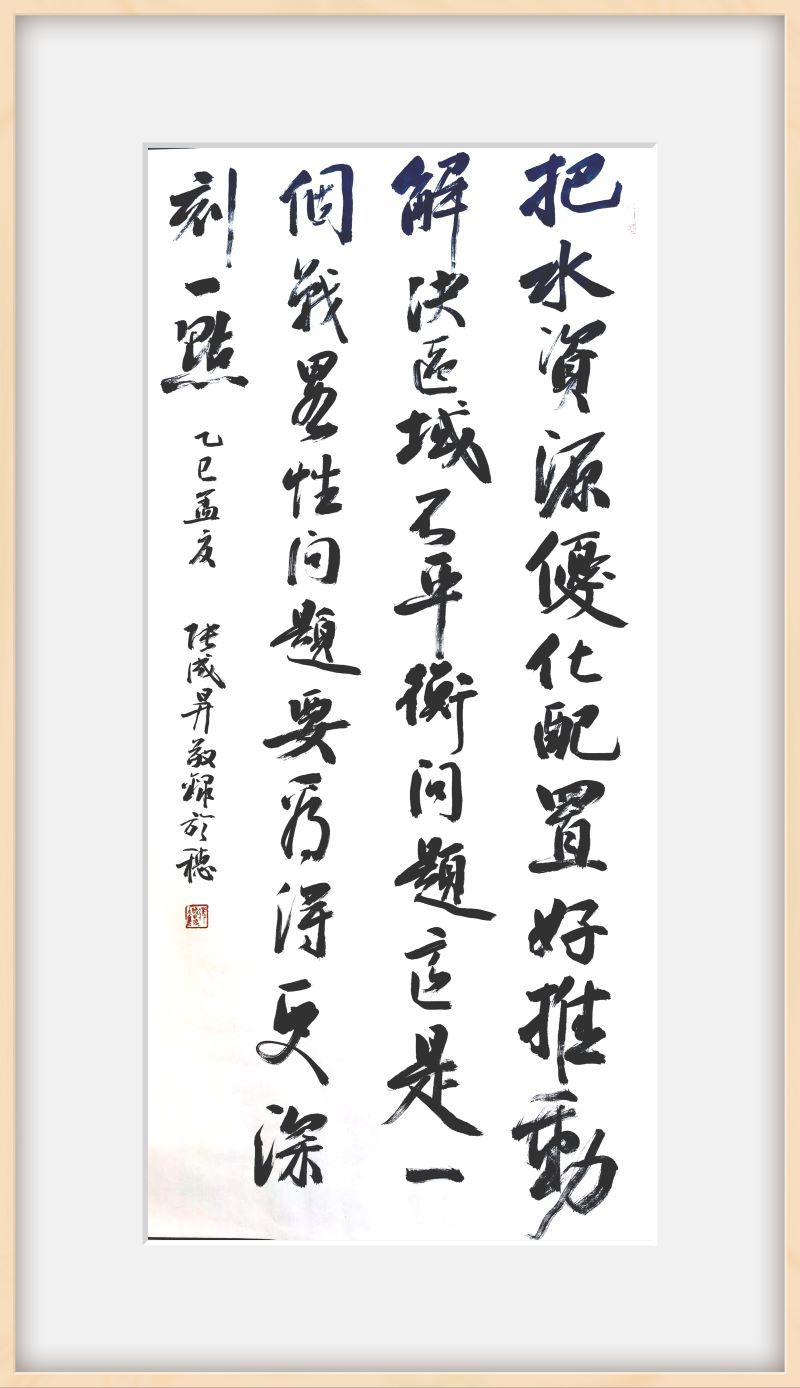 把水資源優化配置好推動
解決區域不平衡問題這是一
個戰畧性問題要看得更深
刻一點 乙巳孟夏 張成昇敬錄於穗